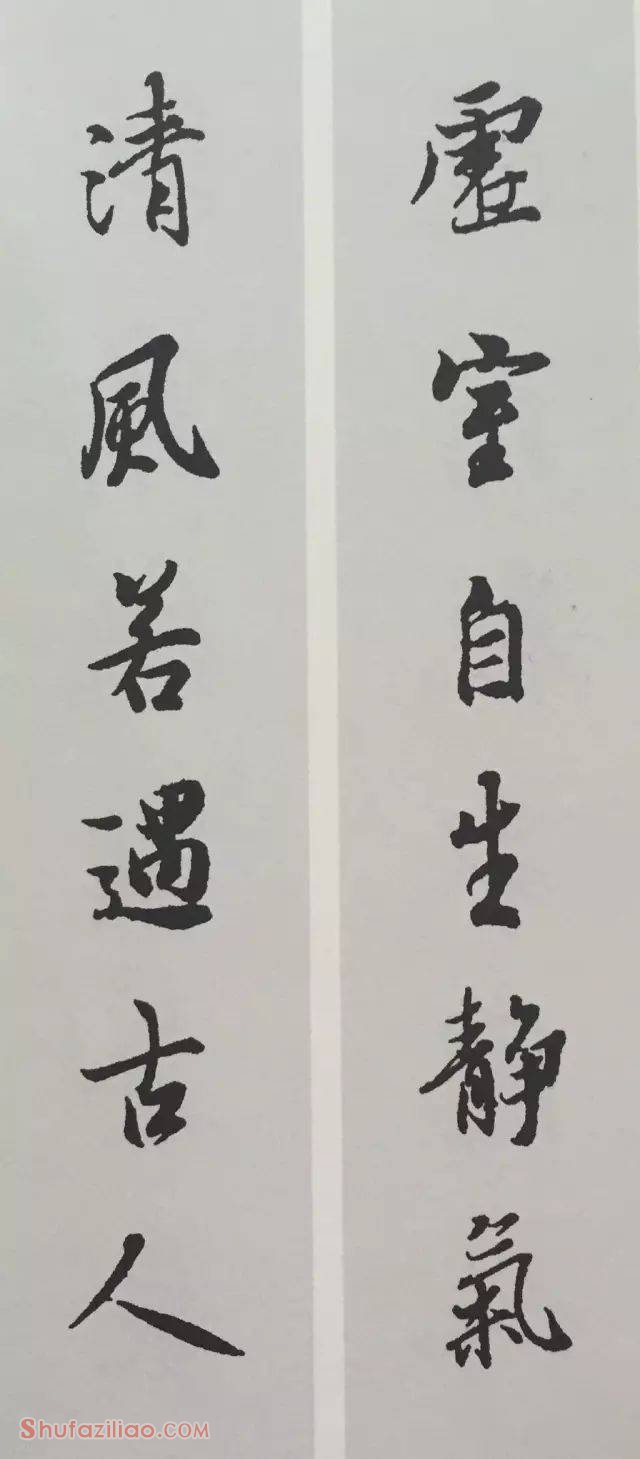 虛室自生靜氣
清風若遇古人
Shufaziliao.com